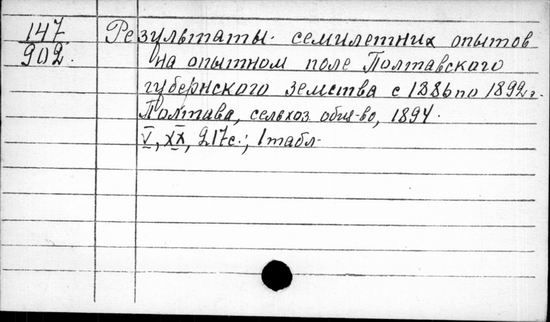 147
902.
Результаты семилетних опытов
на опытном поле Полтавского
губернского земства с 1886 по 1892 г.
Полтава, сельхоз. общ-во, 1894.
V, XX, 217с.; 1 табл.